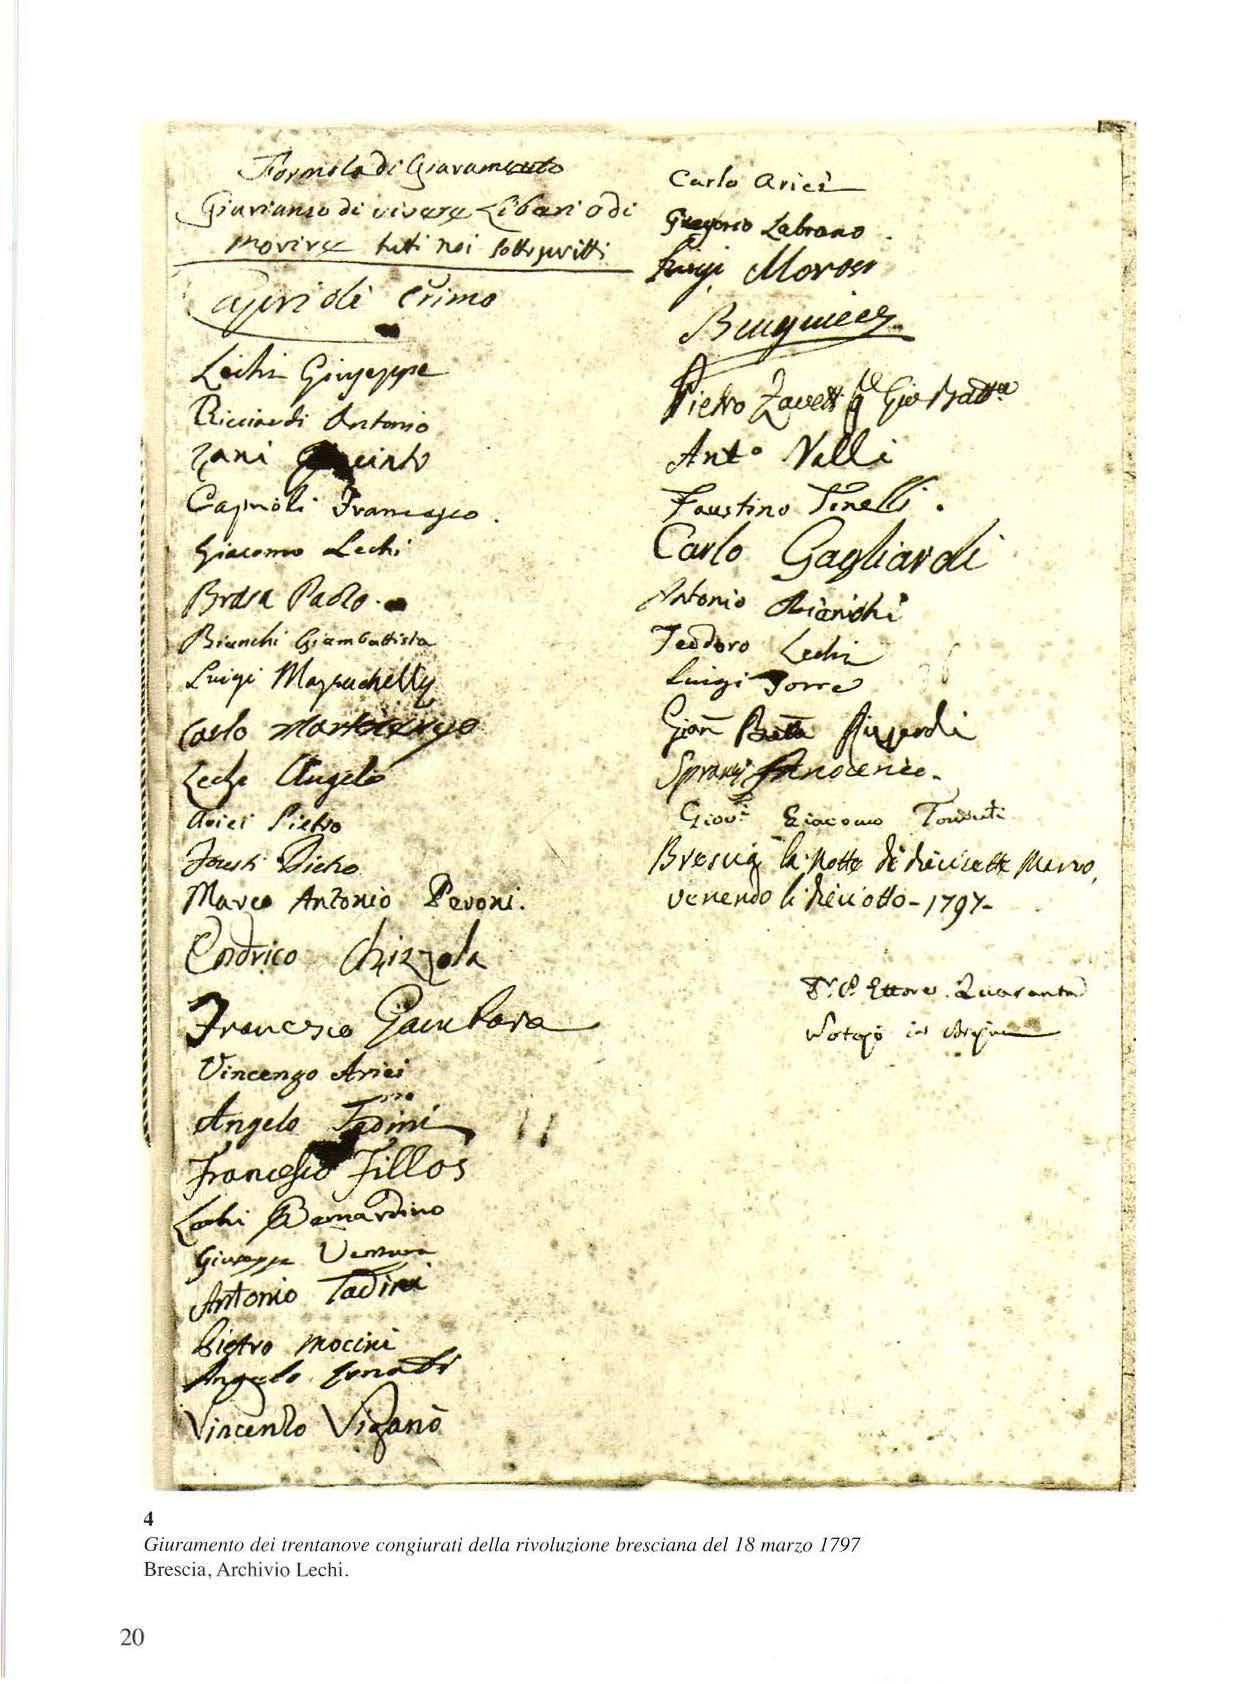 Formola di Giuramento
Giuriamo di vivere Liberi o di
morire tutti noi sottoscritti
Caprioli Erimo
Lechi Giuseppe
Ricciardi Antonio
Zani Giacinto
Caprioli Francesco.
Giacomo Lechi
Brasa Paolo.
Bianchi Giambattista
Luigi Mazzuchelly
Carlo Martinengo
Lechi Angelo
Arici Pietro
Pietro
Marco Antonio Peroni.
Chizzola
Francesco Gambara
Vincenzo Arici
Angelo Tadini
Francesco Fillos
Lechi Bernardino
Giuseppe Ventura
Antonio Tadini
Pietro Mocini
Angelo
Vincenzo Viganò
Carlo Arici
Gregorio Labrano.
Luigi Morosi
Pietro Zanetti q Gio Batta
Ant.o Valli
Faustino Tinelli.
Carlo Gagliardi
Antonio Bianchi
Teodoro Lechi
Luigi Torre
Gian Batta Rizzardi
Innocenzo.
Giov.i Giacomo
Brescia la notte di diecisette Marzo,
venendo li dieciotto - 1797 -
Ettore Quaranta
4
Giuramento dei trentanove congiurati della rivoluzione bresciana del 18 marzo 1797
Brescia, Archivio Lechi.
20